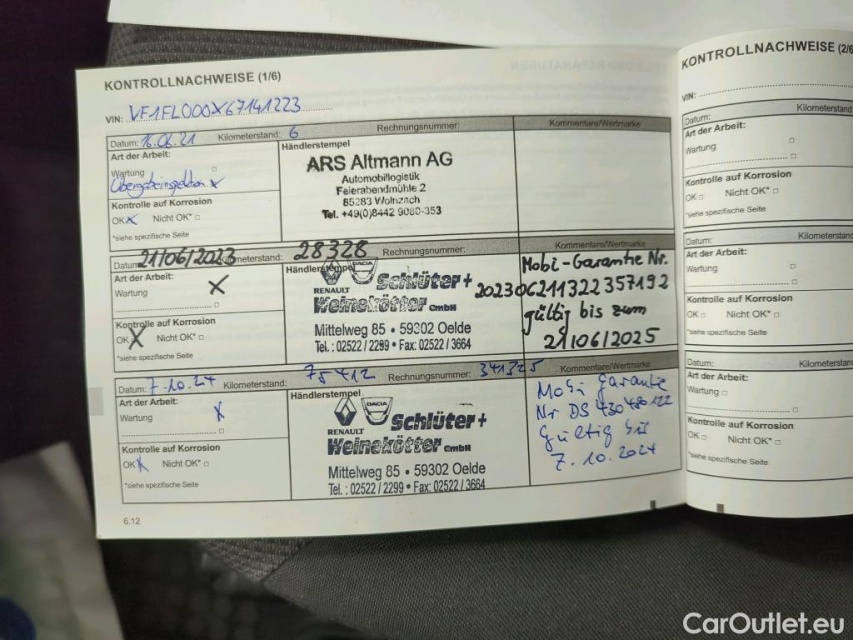 KONTROLLNACHWEISE (1/6)
VIN: VF1FL000X67141223
Datum: 16.06.21 Kilometerstand: 6 Rechnungsnummer: Kommentare/Wertmarke
Art der Arbeit: Händlerstempel
Wartung
Übergabeinspektion x
Kontrolle auf Korrosion
OK x Nicht OK*
*siehe spezifische Seite
ARS Altmann AG
Automobillogistik
Feierabendmühle 2
85283 Wolnzach
Tel. +49(0)8442 9080-353
Datum 21/06/2023 Kilometerstand: 28328 Rechnungsnummer: Kommentare/Wertmarke
Art der Arbeit: Händlerstempel
Wartung X
Kontrolle auf Korrosion
OK X Nicht OK*
*siehe spezifische Seite
RENAULT DACIA Schlüter+
Weinekötter GmbH
Mittelweg 85 • 59302 Oelde
Tel.: 02522/2299 • Fax: 02522/3664
Mobi-Garantie Nr.
202306211322357192
gültig bis zum
21/06/2025
Datum: 7.10.24 Kilometerstand: 75412 Rechnungsnummer: 341325 Kommentare/Wertmarke
Art der Arbeit: Händlerstempel
Wartung X
Kontrolle auf Korrosion
OK X Nicht OK*
*siehe spezifische Seite
RENAULT DACIA Schlüter+
Weinekötter GmbH
Mittelweg 85 • 59302 Oelde
Tel.: 02522/2299 • Fax: 02522/3664
Mobi Garantie
Nr DS
Gültig bis
7.10.2024
6.12
KONTROLLNACHWEISE (2/6
VIN:
Datum: Kilometerstand
Art der Arbeit:
Wartung
Kontrolle auf Korrosion
OK Nicht OK*
*siehe spezifische Seite
Datum: Kilometerstand
Art der Arbeit:
Wartung
Kontrolle auf Korrosion
OK Nicht OK*
*siehe spezifische Seite
Datum: Kilometerstand
Art der Arbeit:
Wartung
Kontrolle auf Korrosion
OK Nicht OK*
*siehe spezifische Seite
CarOutlet.eu